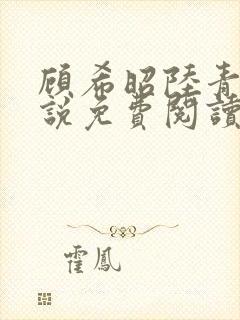 顾希昭陸青
說免費閱讀
霍鳳